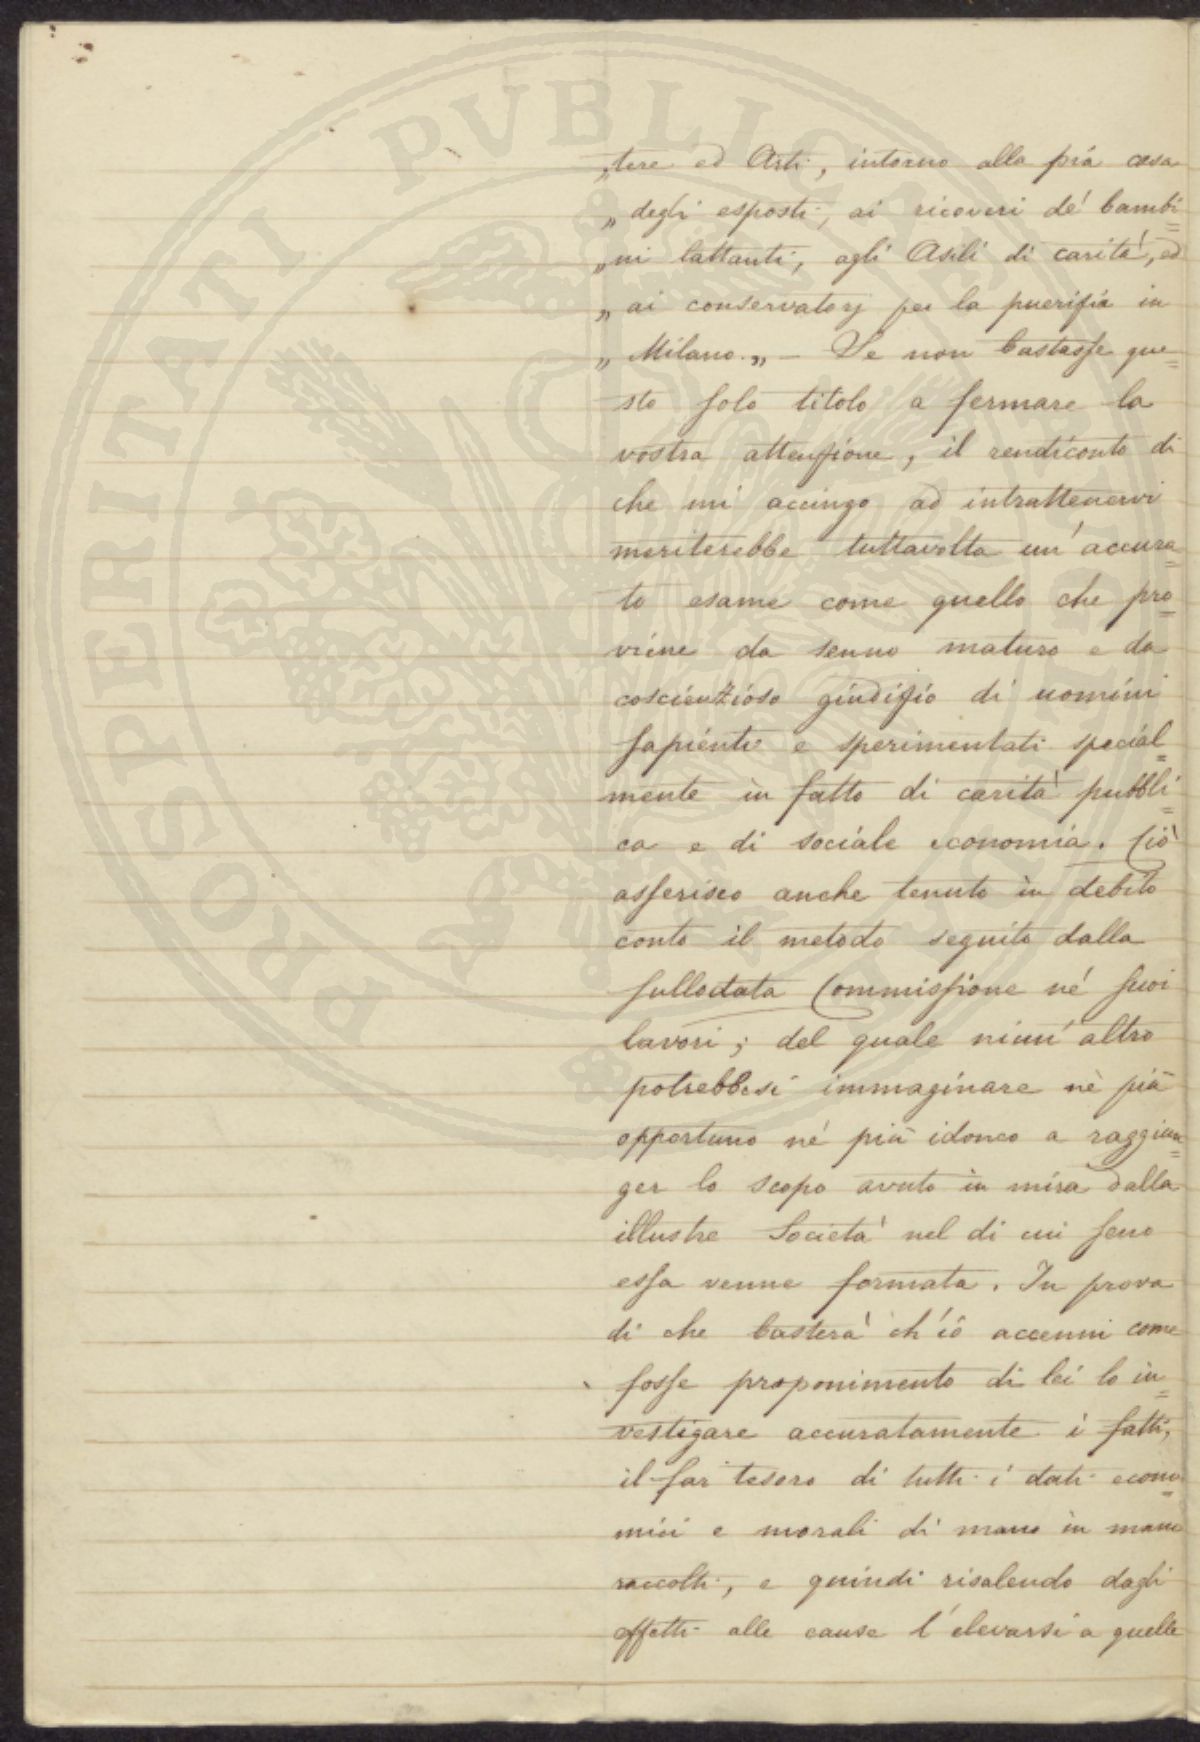 „tere ed Arti, intorno alla pia casa
„ degli esposti, ai ricoveri de' bambi=
„ ni lattanti, agli Asili di carità, ed
„ ai conservatorj per la puerizia in
„ Milano.„ – Se non bastasse que=
sto solo titolo a fermare la
vostra attenzione, il rendiconto di
che mi accingo ad intrattenervi
meriterebbe tuttavolta un' accura=
to esame come quello che pro=
viene da senno maturo e da
coscienzioso giudizio di uomini
sapienti e sperimentati special=
mente in fatto di carità pubbli=
ca e di sociale economia. Ciò
asserisco anche tenuto in debito
conto il metodo seguito dalla
sullodata Commissione ne' suoi
lavori; del quale niun' altro
potrebbesi immaginare nè più
opportuno nè più idoneo a raggiun=
ger lo scopo avuto in mira dalla
illustre Società nel di cui seno
essa venne formata. In prova
di che basterà ch'io accenni come
fosse proponimento di lei lo in=
vestigare accuratamente i fatti,
il far tesoro di tutti i dati econo=
mici e morali di mano in mano
raccolti, e quindi risalendo dagli
effetti alle cause l'elevarsi a quelle
PROSPERITATI PUBLICAE